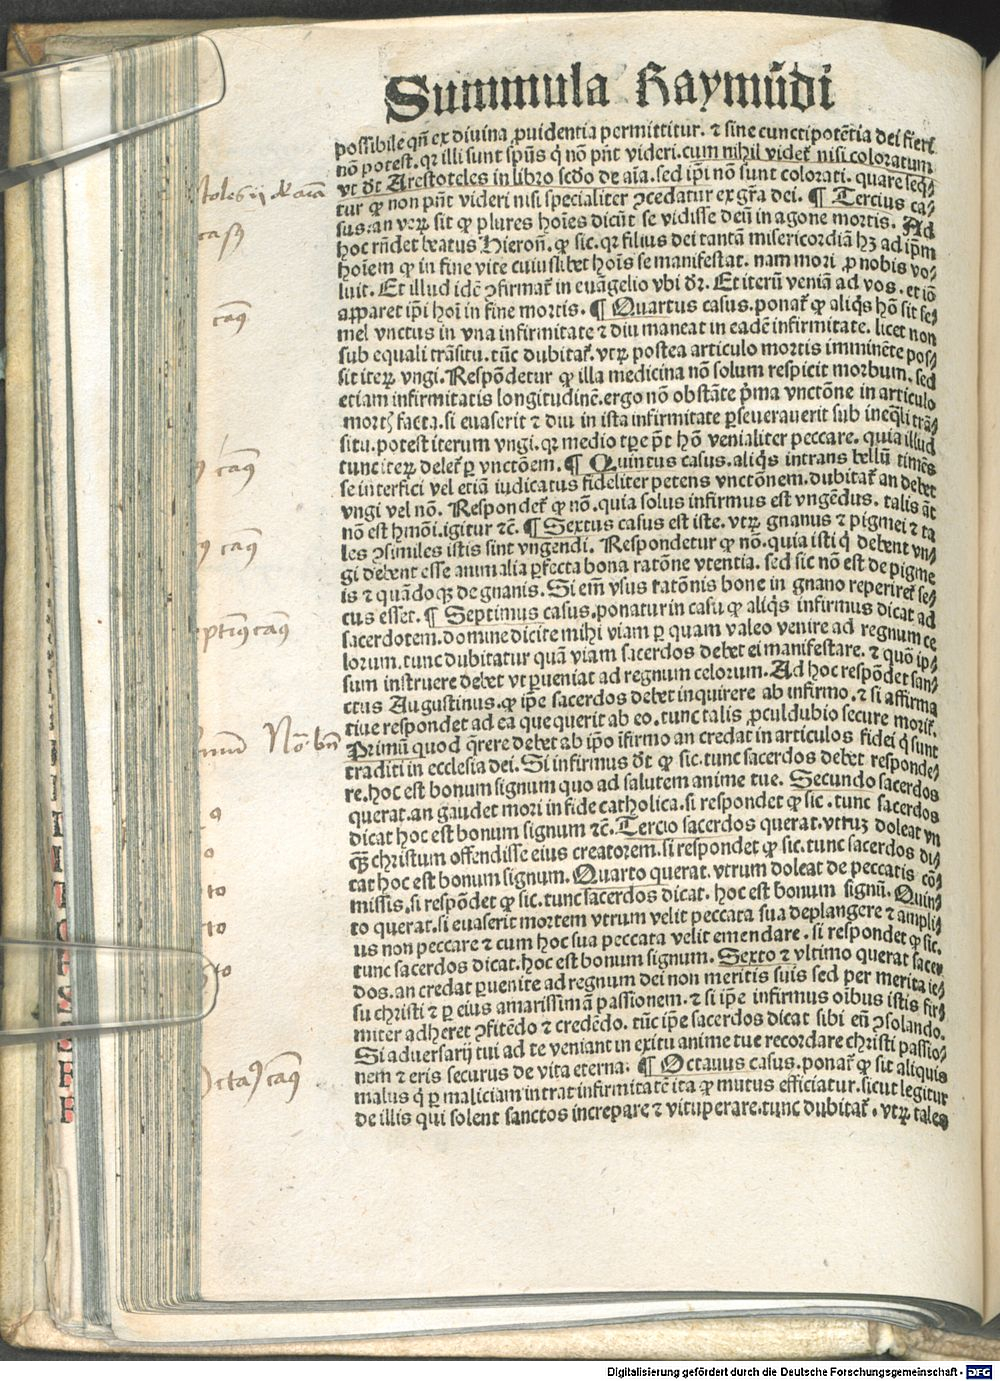 Summula Raymūdi
possibile qn̄ ex divina ꝓuidentia permittitur. ⁊ sine cunctipotētia dei fieri
nō potest. qꝛ illi sunt spūs q̇ nō pn̄t videri. cum nihil videt̄ nisi coloratum
vt dr̄t Arestoteles in libro scd̄o de aīa. sed ip̄i nō sunt colorati. quare seq̄-
tur ꝙ non pn̄t videri nisi specialiter ꝯcedatur ex gr̄a dei. ¶ Tercius ca-
sus. an veꝝ sit ꝙ plures hoīes dicūt se vidisse deū in agone mortis. Ad
hoc rn̄det beatus Hieron̄. ꝙ sic. qꝛ filius dei tantā misericordiā hꝫ ad ip̄m
hoīem ꝙ in fine vite cuiuslibet hoīs se manifestat. nam mori ꝓ nobis vo-
luit. Et illud idē ꝯfirmat̄ in euāgelio vbi dr̄. Et iterū veniā ad vos. et iō
apparet ip̄i hoī in fine mortis. ¶ Quartus casus. ponat̄ ꝙ aliq̇s hō sit se-
mel vnctus in vna infirmitate ⁊ diu maneat in eadē infirmitate. licet non
sub equali trāsitu. tūc dubitat̄. vtꝝ postea articulo mortis imminēte pos-
sit iteꝝ vngi. Respōdetur ꝙ illa medicina nō solum respicit morbum. sed
etiam infirmitatis longitudinē. ergo nō obstāte p̄ma vnctōne in articulo
mort̄ facta. si euaserit ⁊ diu in ista infirmitate ꝑseuerauerit sub ineq̄li trā-
situ. potest iterum vngi. qꝛ medio tꝑe p̄t hō venialiter peccare. quia illud
tunc iteꝝ delet̄ ꝑ vnctōem. ¶ Quintus casus. aliq̇s intrans bellū timēs
se interfici vel etiā iudicatus fideliter petens vnctōnem. dubitat̄ an debet
vngi vel nō. Respondet̄ ꝙ nō. quia solus infirmus est vngēdus. talis āt
nō est hmōi. igitur ⁊c̄. ¶ Sextus casus est iste. vtꝝ gnanus ⁊ pigmei ⁊ ta
les ꝯsimiles istis sint vngendi. Respondetur ꝙ nō. quia isti q̇ debent vn-
gi debent esse animalia ꝑfecta bona ratōne vtentia. sed sic nō est de pigme
is ⁊ quādoqꝫ de gnanis. Si em̄ vsus ratōnis bone in gnano reperiret̄ se-
cus esset. ¶ Septimus casus. ponatur in casu ꝙ aliq̇s infirmus dicat ad
sacerdotem. domine dicite mihi viam ꝑ quam valeo venire ad regnum ce
lorum. tunc dubitatur quā viam sacerdos debet ei manifestare. ⁊ quō ip-
sum instruere debet vt ꝑueniat ad regnum celorum. Ad hoc respōdet san-
ctus Augustinus. ꝙ ip̄e sacerdos debet inquirere ab infirmo. ⁊ si affirma
tiue respondet ad ea que querit ab eo. tunc talis ꝓculdubio secure morit̄.
Primū quod q̄rere debet ab ip̄o īfirmo an credat in articulos fidei q̇ sunt
traditi in ecclesia dei. Si infirmus dr̄t ꝙ sic. tunc sacerdos debet responde-
re. hoc est bonum signum quo ad salutem anime tue. Secundo sacerdos
querat. an gaudet mori in fide catholica. si respondet ꝙ sic. tunc sacerdos
dicat hoc est bonum signum ⁊c̄. Tercio sacerdos querat. vtruꝫ doleat vn
qꝫ christum offendisse eius creatorem. si respondet ꝙ sic. tunc sacerdos di-
cat hoc est bonum signum. Quarto querat. vtrum doleat de peccatis cō-
missis. si respōdet ꝙ sic. tunc sacerdos dicat. hoc est bonum signū. Quin-
to querat. si euaserit mortem vtrum velit peccata sua deplangere ⁊ ampli-
us non peccare ⁊ cum hoc sua peccata velit emendare. si respondet ꝙ sic.
tunc sacerdos dicat. hoc est bonum signum. Sexto ⁊ vltimo querat sacer
dos. an credat ꝑuenire ad regnum dei non meritis suis sed per merita ie-
su christi ⁊ ꝑ eius amarissimā passionem. ⁊ si ip̄e infirmus oībus istis fir-
miter adheret ꝯfitēdo ⁊ credēdo. tūc ip̄e sacerdos dicat sibi eū ꝯsolando.
Si aduersarij tui ad te veniant in exitu anime tue recordare christi passio-
nem ⁊ eris securus de vita eterna: ¶ Octauus casus. ponat̄ ꝙ sit aliquis
malus q̇ ꝑ maliciam intrat infirmitatē ita ꝙ mutus efficiatur. sicut legitur
de illis qui solent sanctos increpare ⁊ vituperare. tunc dubitat̄. vtꝝ tales
toles ij de aīa
casꝫ
casꝰ
casꝰ
casꝰ
eptimꝰ casꝰ
Nō bn̄
o
o
to
to
to
octaꝰ casꝰ
Digitalisierung gefördert durch die Deutsche Forschungsgemeinschaft - DFG